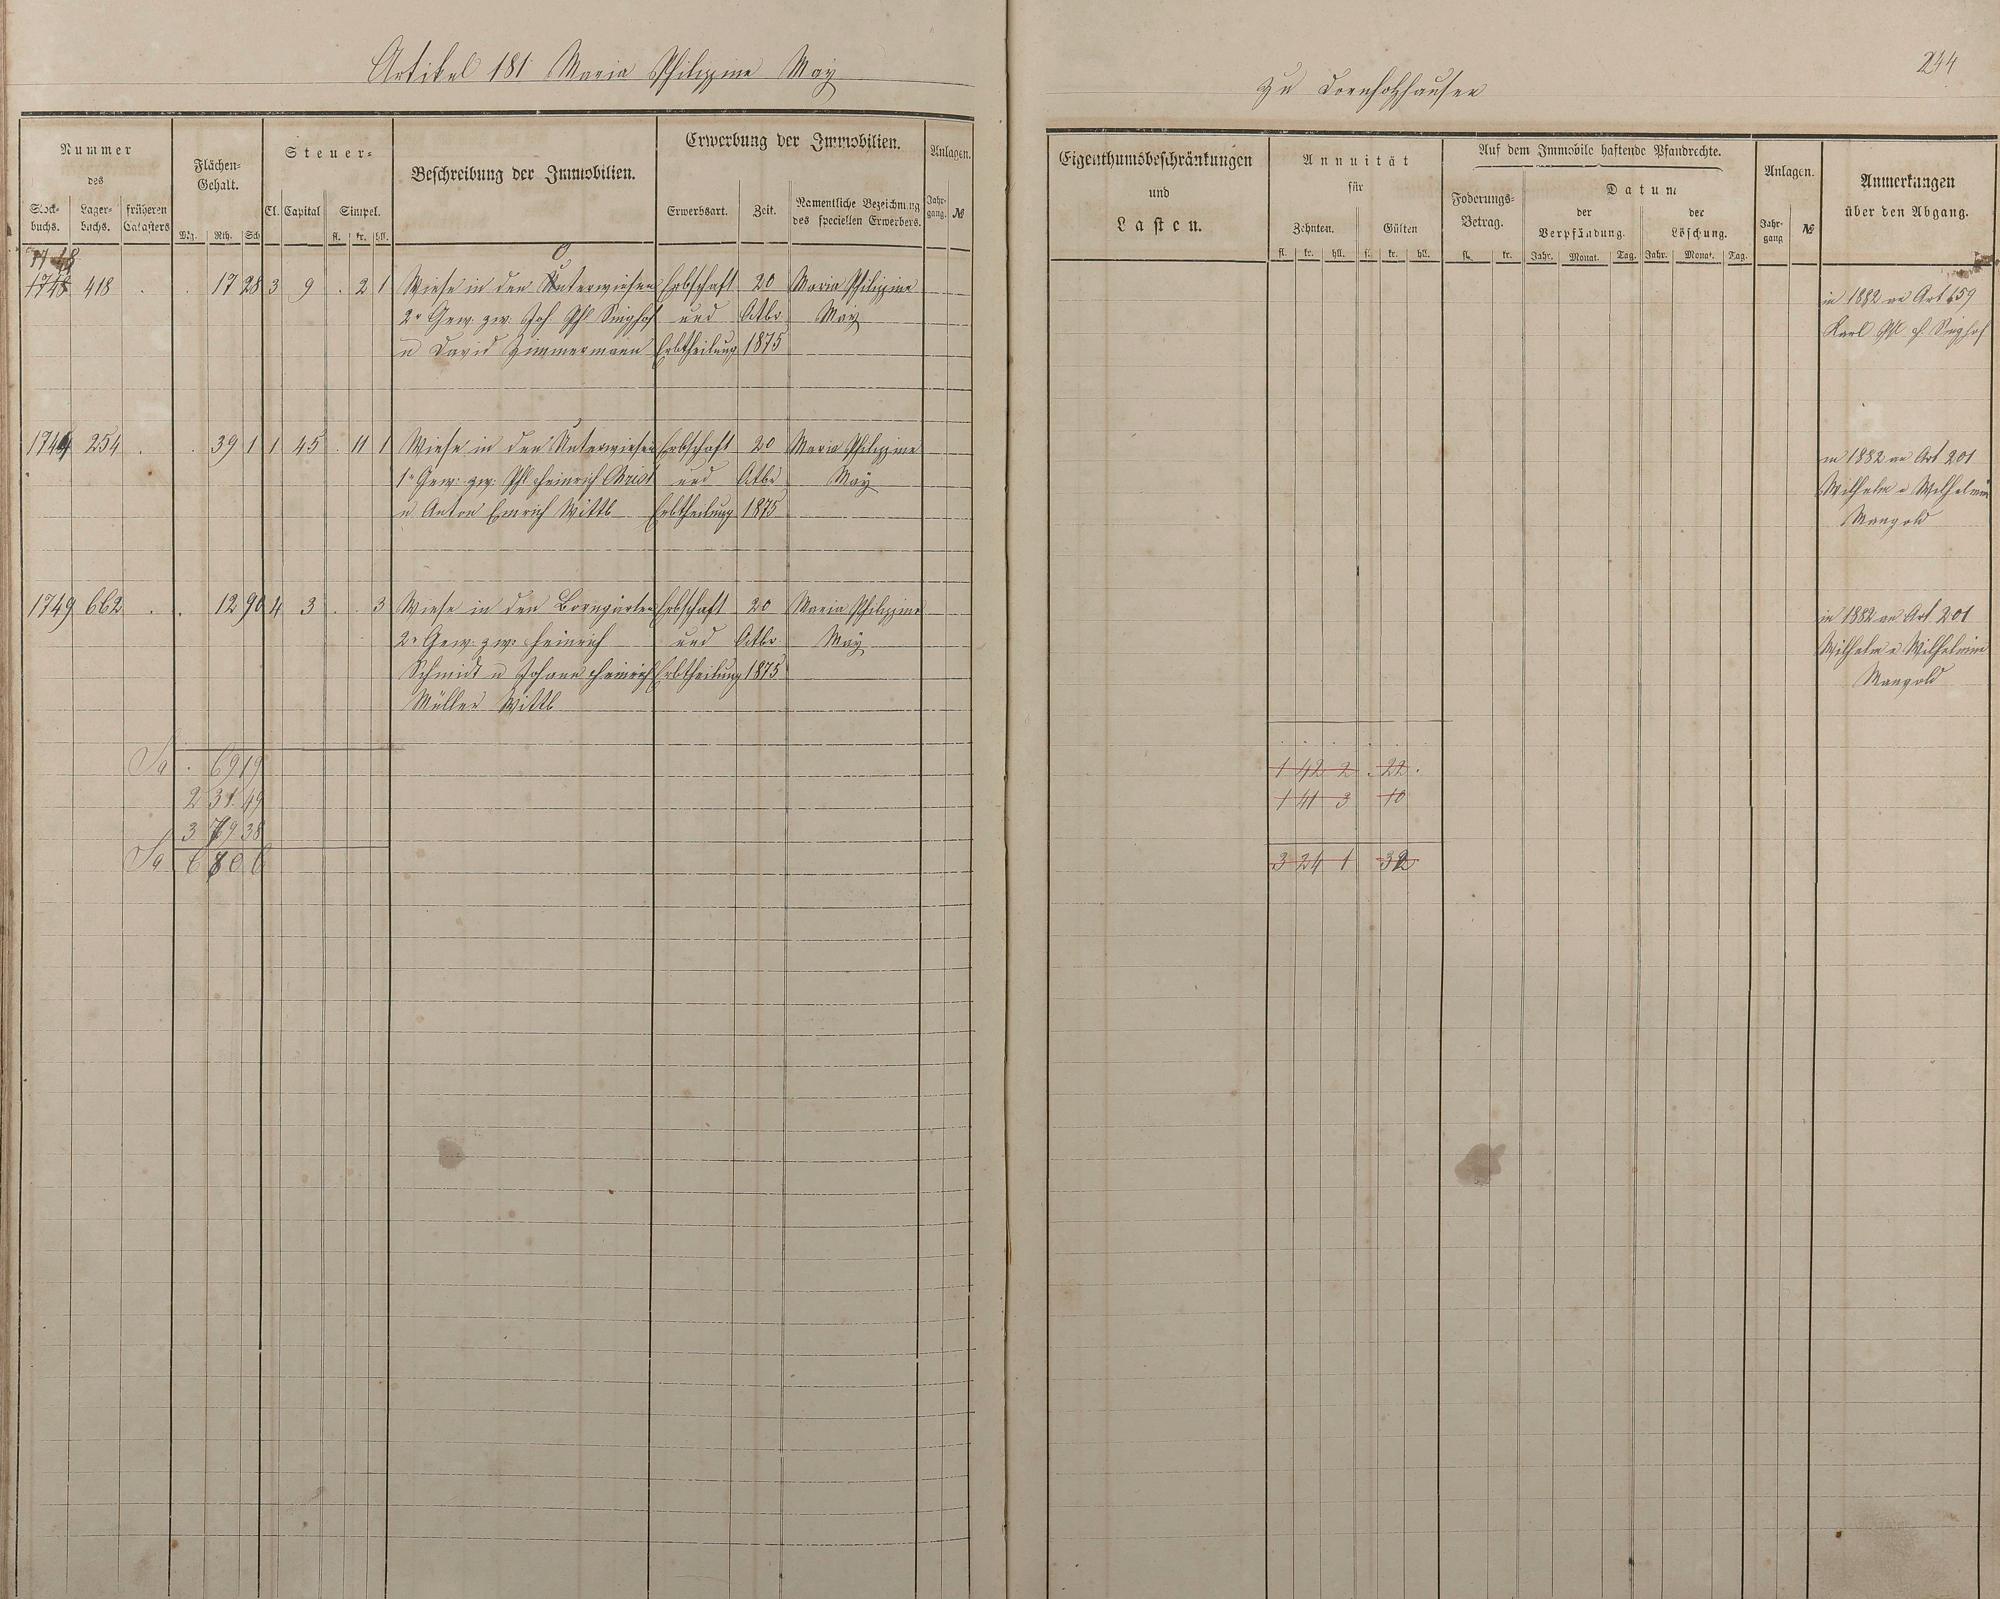 Artikel 181 Maria Philippine May
zu Dornholzhausen
244
Nummer
des
Stock-
buchs.
Lager-
buchs.
früheren
Catasters
Flächen-
Gehalt.
Mg. Rth. Sch
Steuer-
Cl. Capital Simpel.
fl. kr. hll.
Beschreibung der Immobilien.
Erwerbung der Immobilien.
Erwerbsart. Zeit. Namentliche Bezeichnung
des speciellen Erwerbers.
Anlagen.
Jahr-
gang. №
Eigenthumsbeschränkungen
und
Lasten.
Annuität
für
Zehnten. Gülten
fl. kr. hll. fl. kr. hll.
Auf dem Immobile haftende Pfandrechte.
Foderungs-
Betrag.
fl. kr.
Datum
der
Verpfändung.
der
Löschung.
Jahr. Monat. Tag. Jahr. Monat. Tag.
Anlagen.
Jahr-
gang №
Anmerkungen
über den Abgang.
1748
1748 418 . . 17 28 3 9 . 2 1 Wiese in den Unterwiesen Erbschaft 20 Maria Philippine
2r Gew: zw: Joh Phl Singhof und Octbr May
u David Zimmermann Erbtheilung 1875
in 1882 an Art 159
Karl Phl H Singhof
254 . . 39 1 1 45 . 11 1 Wiese in den Unterwiesen Erbschaft 20 Maria Philippine
1r Gew: zw: Phl Heinrich und Octbr May
u Anton Emrich Wittb Erbtheilung 1875
in 1882 an Art 201
Wilhelm u Wilhelmine
Mangold
1749 662 . . 12 90 4 3 . . 3 Wiese in den Borngärten Erbschaft 20 Maria Philippine
2r Gew: zw: Heinrich und Octbr May
Schmidt u Johann Heinrich Erbtheilung 1875
Müller Wittb
in 1882 an Art 201
Wilhelm u Wilhelmine
Mangold
Sa . 69 19
2 31 49
3 79 38
Sa 6 80 6
1 42 2 . 22 .
1 41 3 10
3 24 1 32